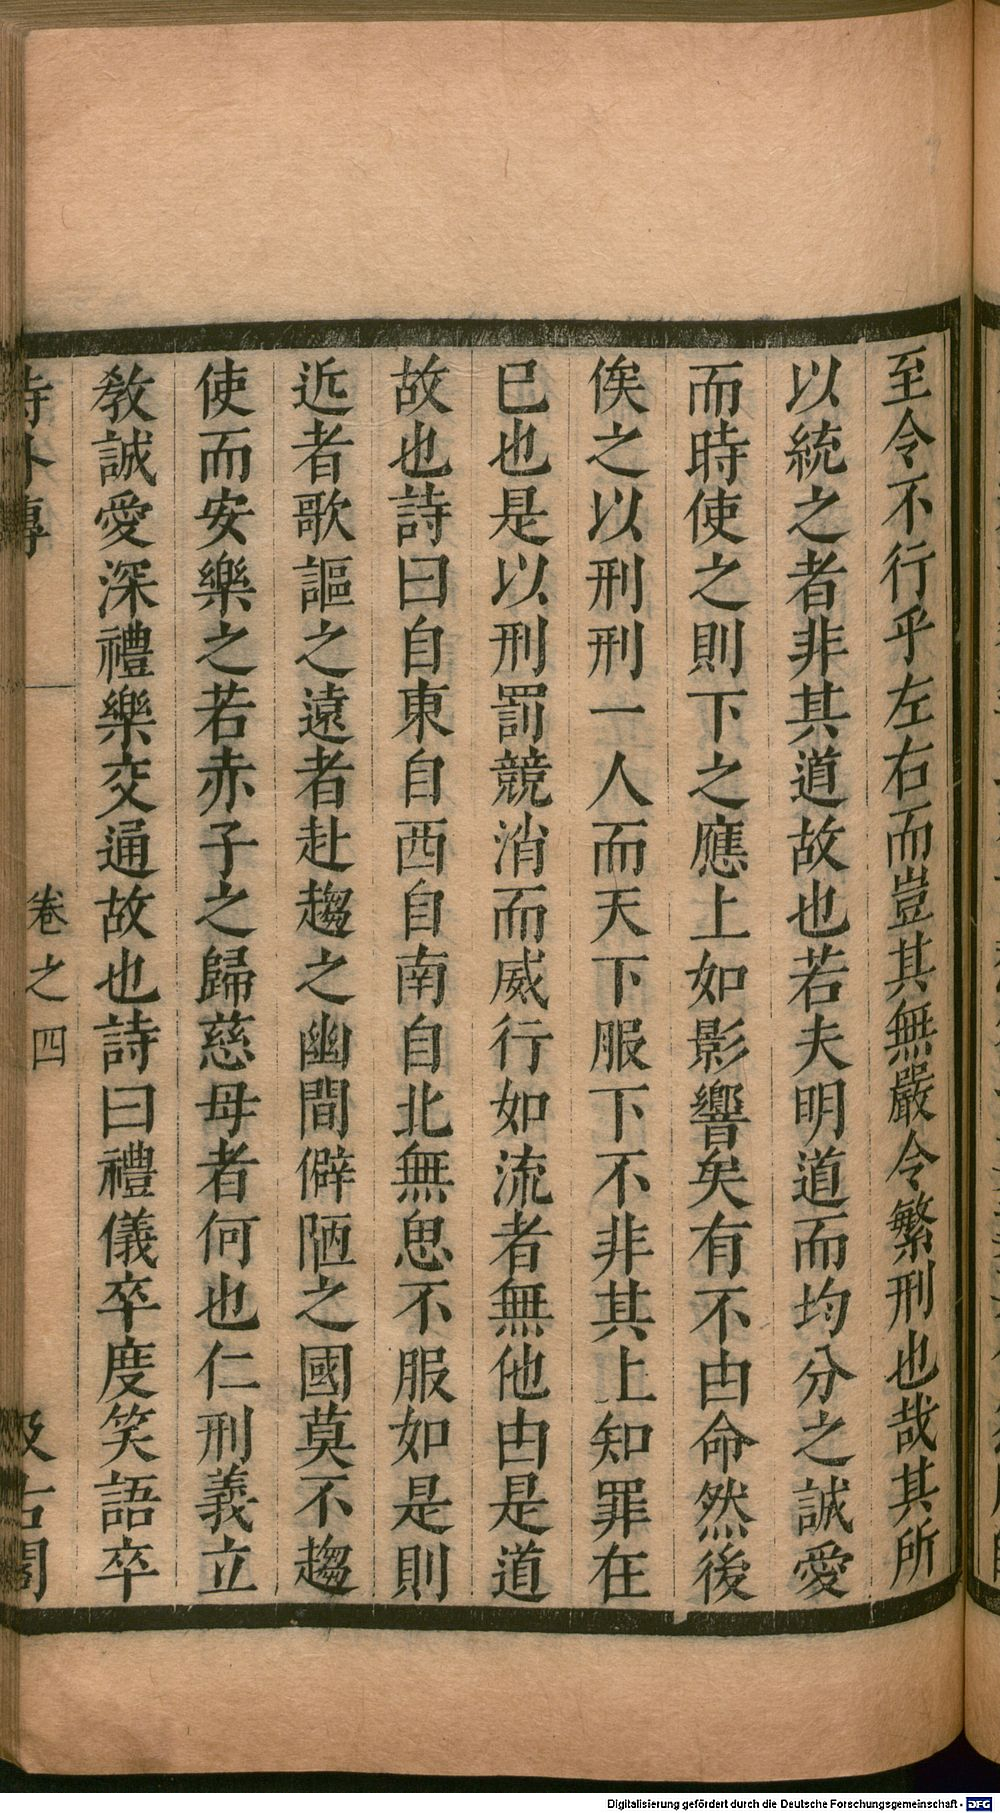 至令不行乎左右而豈其無嚴令繁刑也哉其所
以統之者非其道故也若夫明道而均分之誠愛
而時使之則下之應上如影響矣有不由命然後
俟之以刑刑一人而天下服下不非其上知罪在
已也是以刑罰競消而威行如流者無他由是道
故也詩曰自東自西自南自北無思不服如是則
近者歌謳之遠者赴趨之幽間僻陋之國莫不趨
使而安樂之若赤子之歸慈母者何也仁刑義立
敎誠愛深禮樂交通故也詩曰禮儀卒度笑語卒
詩外傳
卷之四
汲古閣
Digitalisierung gefördert durch die Deutsche Forschungsgemeinschaft - DFG